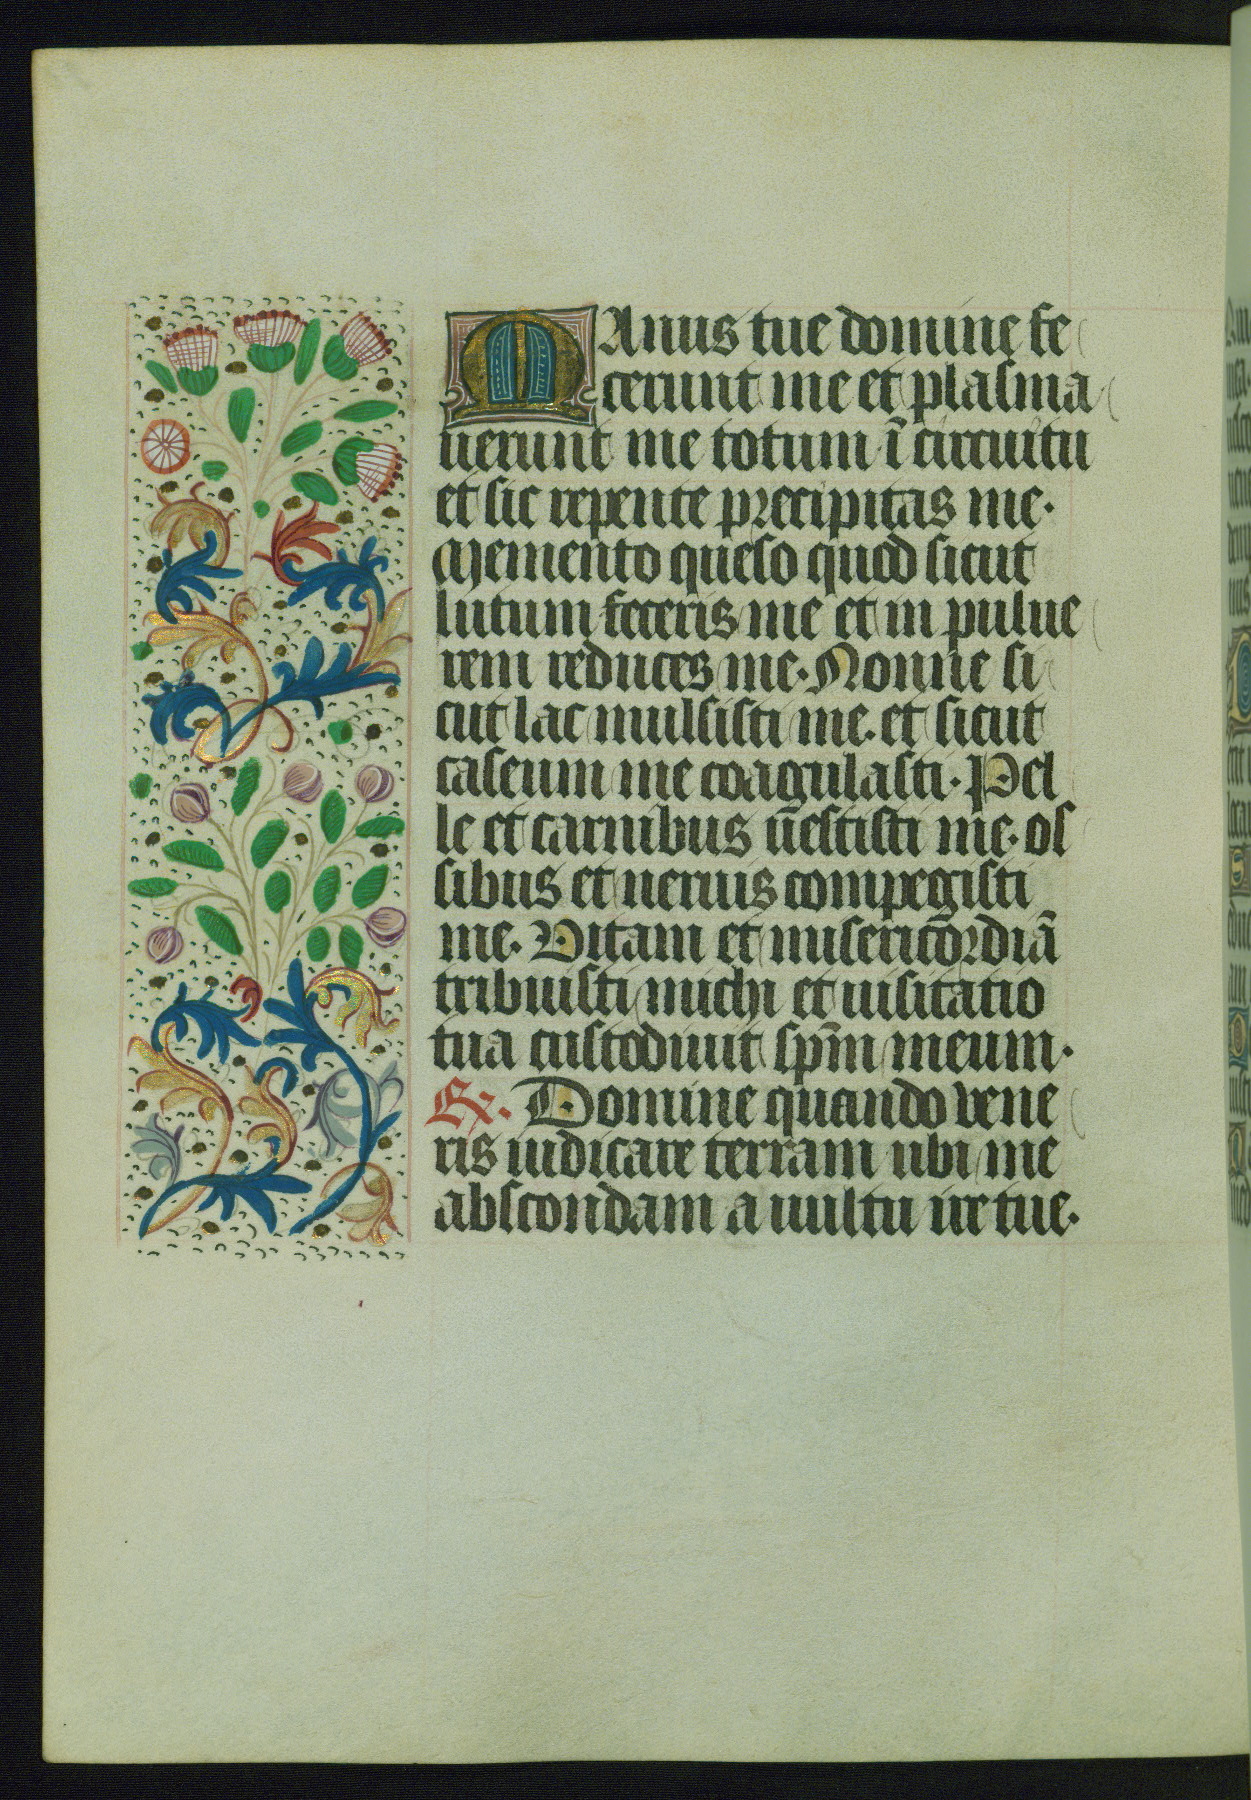 MAnus tue domine fe
cerunt me et plasma
uerunt me totum ī circuitu
et sic repente precipitas me.
Memento queso quod sicut
lutum feceris me et in pulue
rem reduces me. Nonne si
cut lac mulsisti me. et sicut
caseum me coagulasti. Pel
le et carnibus ūestisti me. os
sibus et neruis compegisti
me. Vitam et misericōrdiā
tribuisti michi et uisitatio
tua custodiuit sp̄m meum.
Rx. Domine quando vene
ris iudicare terram ubi me
abscondam a uultu ire tue.